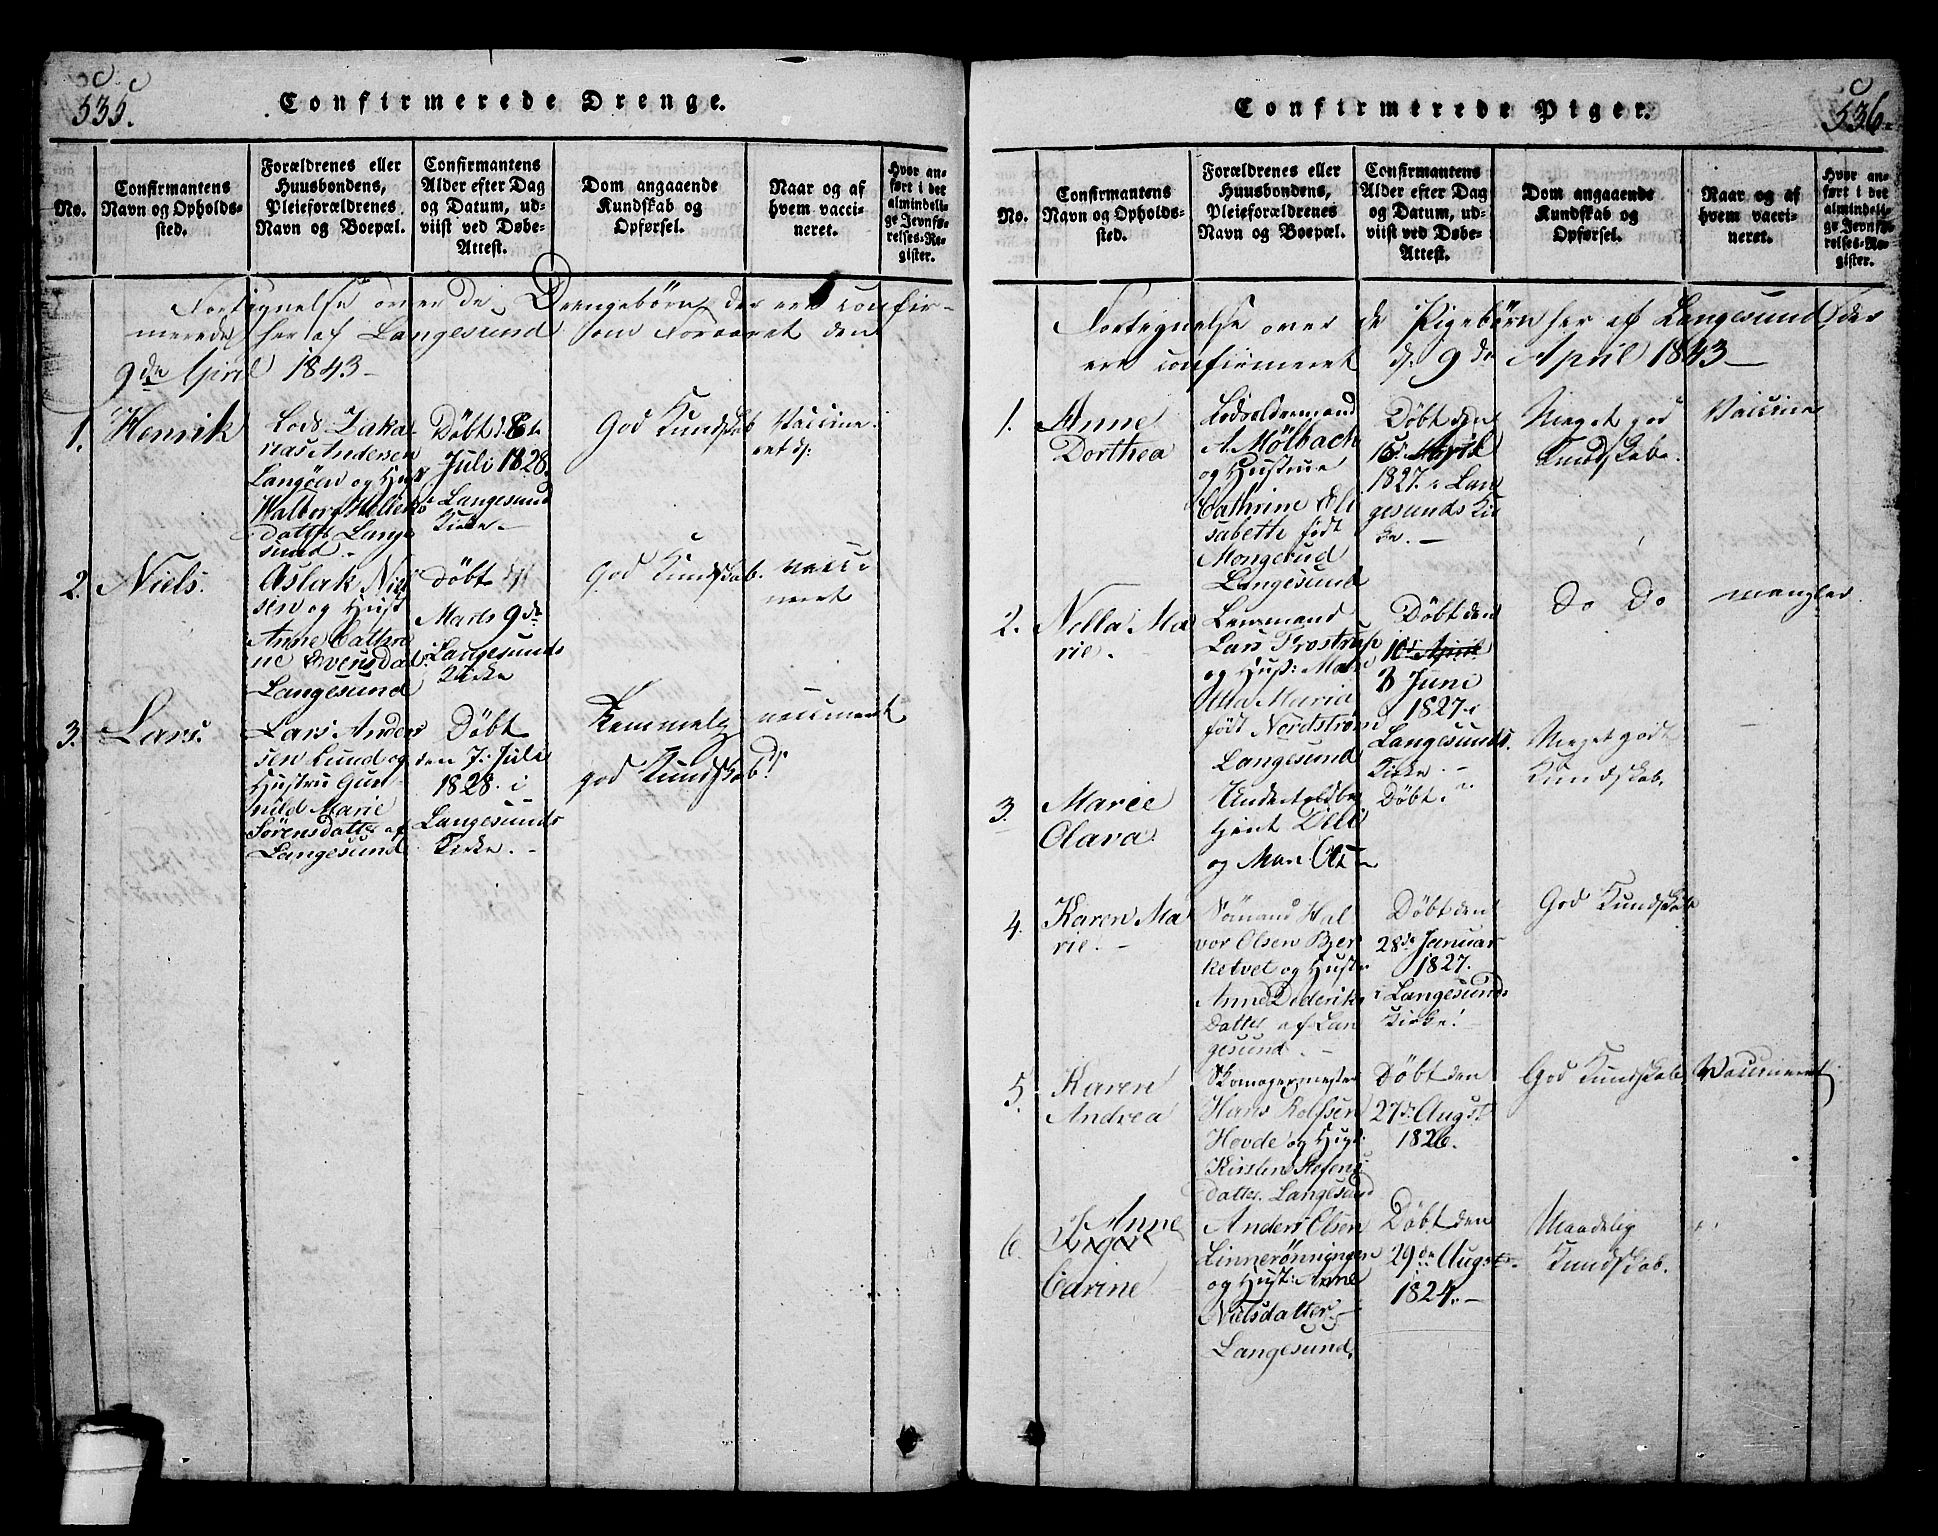 535.
Confirmerede Drenge.
No.
Confirmantens
Navn og Opholds-
sted.
Forældrenes eller
Huusbondens,
Pleieforældrenes
Navn og Boepæl.
Confirmantens
Alder efter Dag
og Datum, ud-
viist ved Døbe-
Attest.
Dom angaaende
Kundskab og
Opførsel.
Naar og af
hvem vacci-
neret.
Hvor an-
ført i det
almindeli-
ge Jevnfø-
relses-Re-
gister.
Fortegnelse over de Drengebørn der ere confir-
merede her af Langesund som Foraaret den
9de April 1843
1.
Henrik
Lods Zaka
rias Andersen
Langøen og Hust
Walborg
datter Lange
sund
Døbt d. 8de
Juli 1828
i Langesund
Kirke
God Kundskab
Vaccine-
ret
2.
Niels.
Aslak Niel
sen og Hust
Anne Cathri
ne Svensdat
Langesund
Døbt
Marts 9de
Langesunds
Kirke
God Kundskab.
vacci
neret
3.
Lars.
Lars Ander
sen Lund og
Hustru Gun-
hild Marie
Sørensdatter af
Langesund
Døbt
den 7. Juli
1828. i
Langesunds
Kirke.
Temmelig
god Kundskab
vaccineret
536.
Confirmerede Piger.
No.
Confirmantens
Navn og Opholds-
sted.
Forældrenes eller
Huusbondens,
Pleieforældrenes
Navn og Boepæl.
Confirmantens
Alder efter Dag
og Datum, ud-
viist ved Døbe-
Attest.
Dom angaaende
Kundskab og
Opførsel.
Naar og af
hvem vacci-
neret.
Hvor an-
ført i det
almindeli-
ge Jevnfø-
relses-Re-
gister.
Fortegnelse over de Pigebørn her af Langesund, der
ere confirmeret d. 9de April 1843
1.
Anne
Dorthea
Lodsoldermand
A. Mølbach
og Hustrue
Cathrine Eli
sabette født
Mongerud
Langesund
Døbt den
15 April
1827. i Lan
gesunds Kir
ke.
Meget god
Kundskab.
Vaccine
2.
Nella Ma
rie.
Lensmand
Lars Trostrup
og Hust:
Maria
født Nordstrøm
Langesund
Døbt den
10 April
3 Juni
1827 i
Langesunds
Kirke.
Do Do
mangler
3.
Maree
Clara
og
Døbt.
Meget godt
Kundskab.
4.
Karen Ma
rie.
Sömand Hal
vor Olsen Bjer
ketvet og Hustr
Anne Dideriks
Datter af Lan
gesund.
Døbt den
28de Januar
1827.
i Langesunds
Kirke
God Kundskab
5.
Karen
Andrea
Skomagermester
Hans Rolfsen
Hovde og Hust:
Kirsten
datter. Langesund
Døbt den
27de August
1826.
God Kundskab
Vaccineret
6.
Anne
Inger
Carine
Anders Olsen
Linnerönningen
og Hust: Anne
Nielsdatter
Langesund.
Døbt den
29de August
1824.
Maadelig
Kundskab.